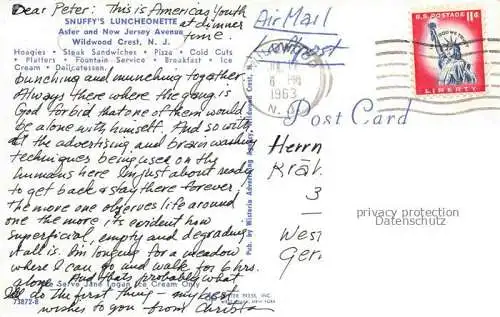 Dear Peter: This is Americas Youth
SNUFFY'S LUNCHEONETTE
at dinner
Aster and New Jersey Avenue
time.
Wildwood Crest, N. J.
Hoagies • Steak Sandwiches • Pizza • Cold Cuts
• Platters • Fountain Service • Breakfast • Ice
Cream • Delicatessen.
bunching and munching together.
Always there where the gang is
God forbid that one of them would
be alone with himself. And so with
all the advertising and brain washing
techniques being used on the
humans here I'm just about ready
to get back & stay there forever,
the more one observes life around
one the more its evident how
superficial, empty and degrading
it all is. I'm longing for a meadow
where I can go and walk for 6 hrs.
alone. And thats probably what
We Serve Jane Logan Ice Cream Only
I'll do the first thing - my best
73872-B
wishes to you from Christa
Pub. by Wisteria Advertising Agency, Wildwood Crest, N. J.
Air Mail
PM
1963
N.
U.S. POSTAGE
11¢
LIBERTY
Post Card
Herrn
Kräv.
3
West
Ger
privacy protection
Datenschutz